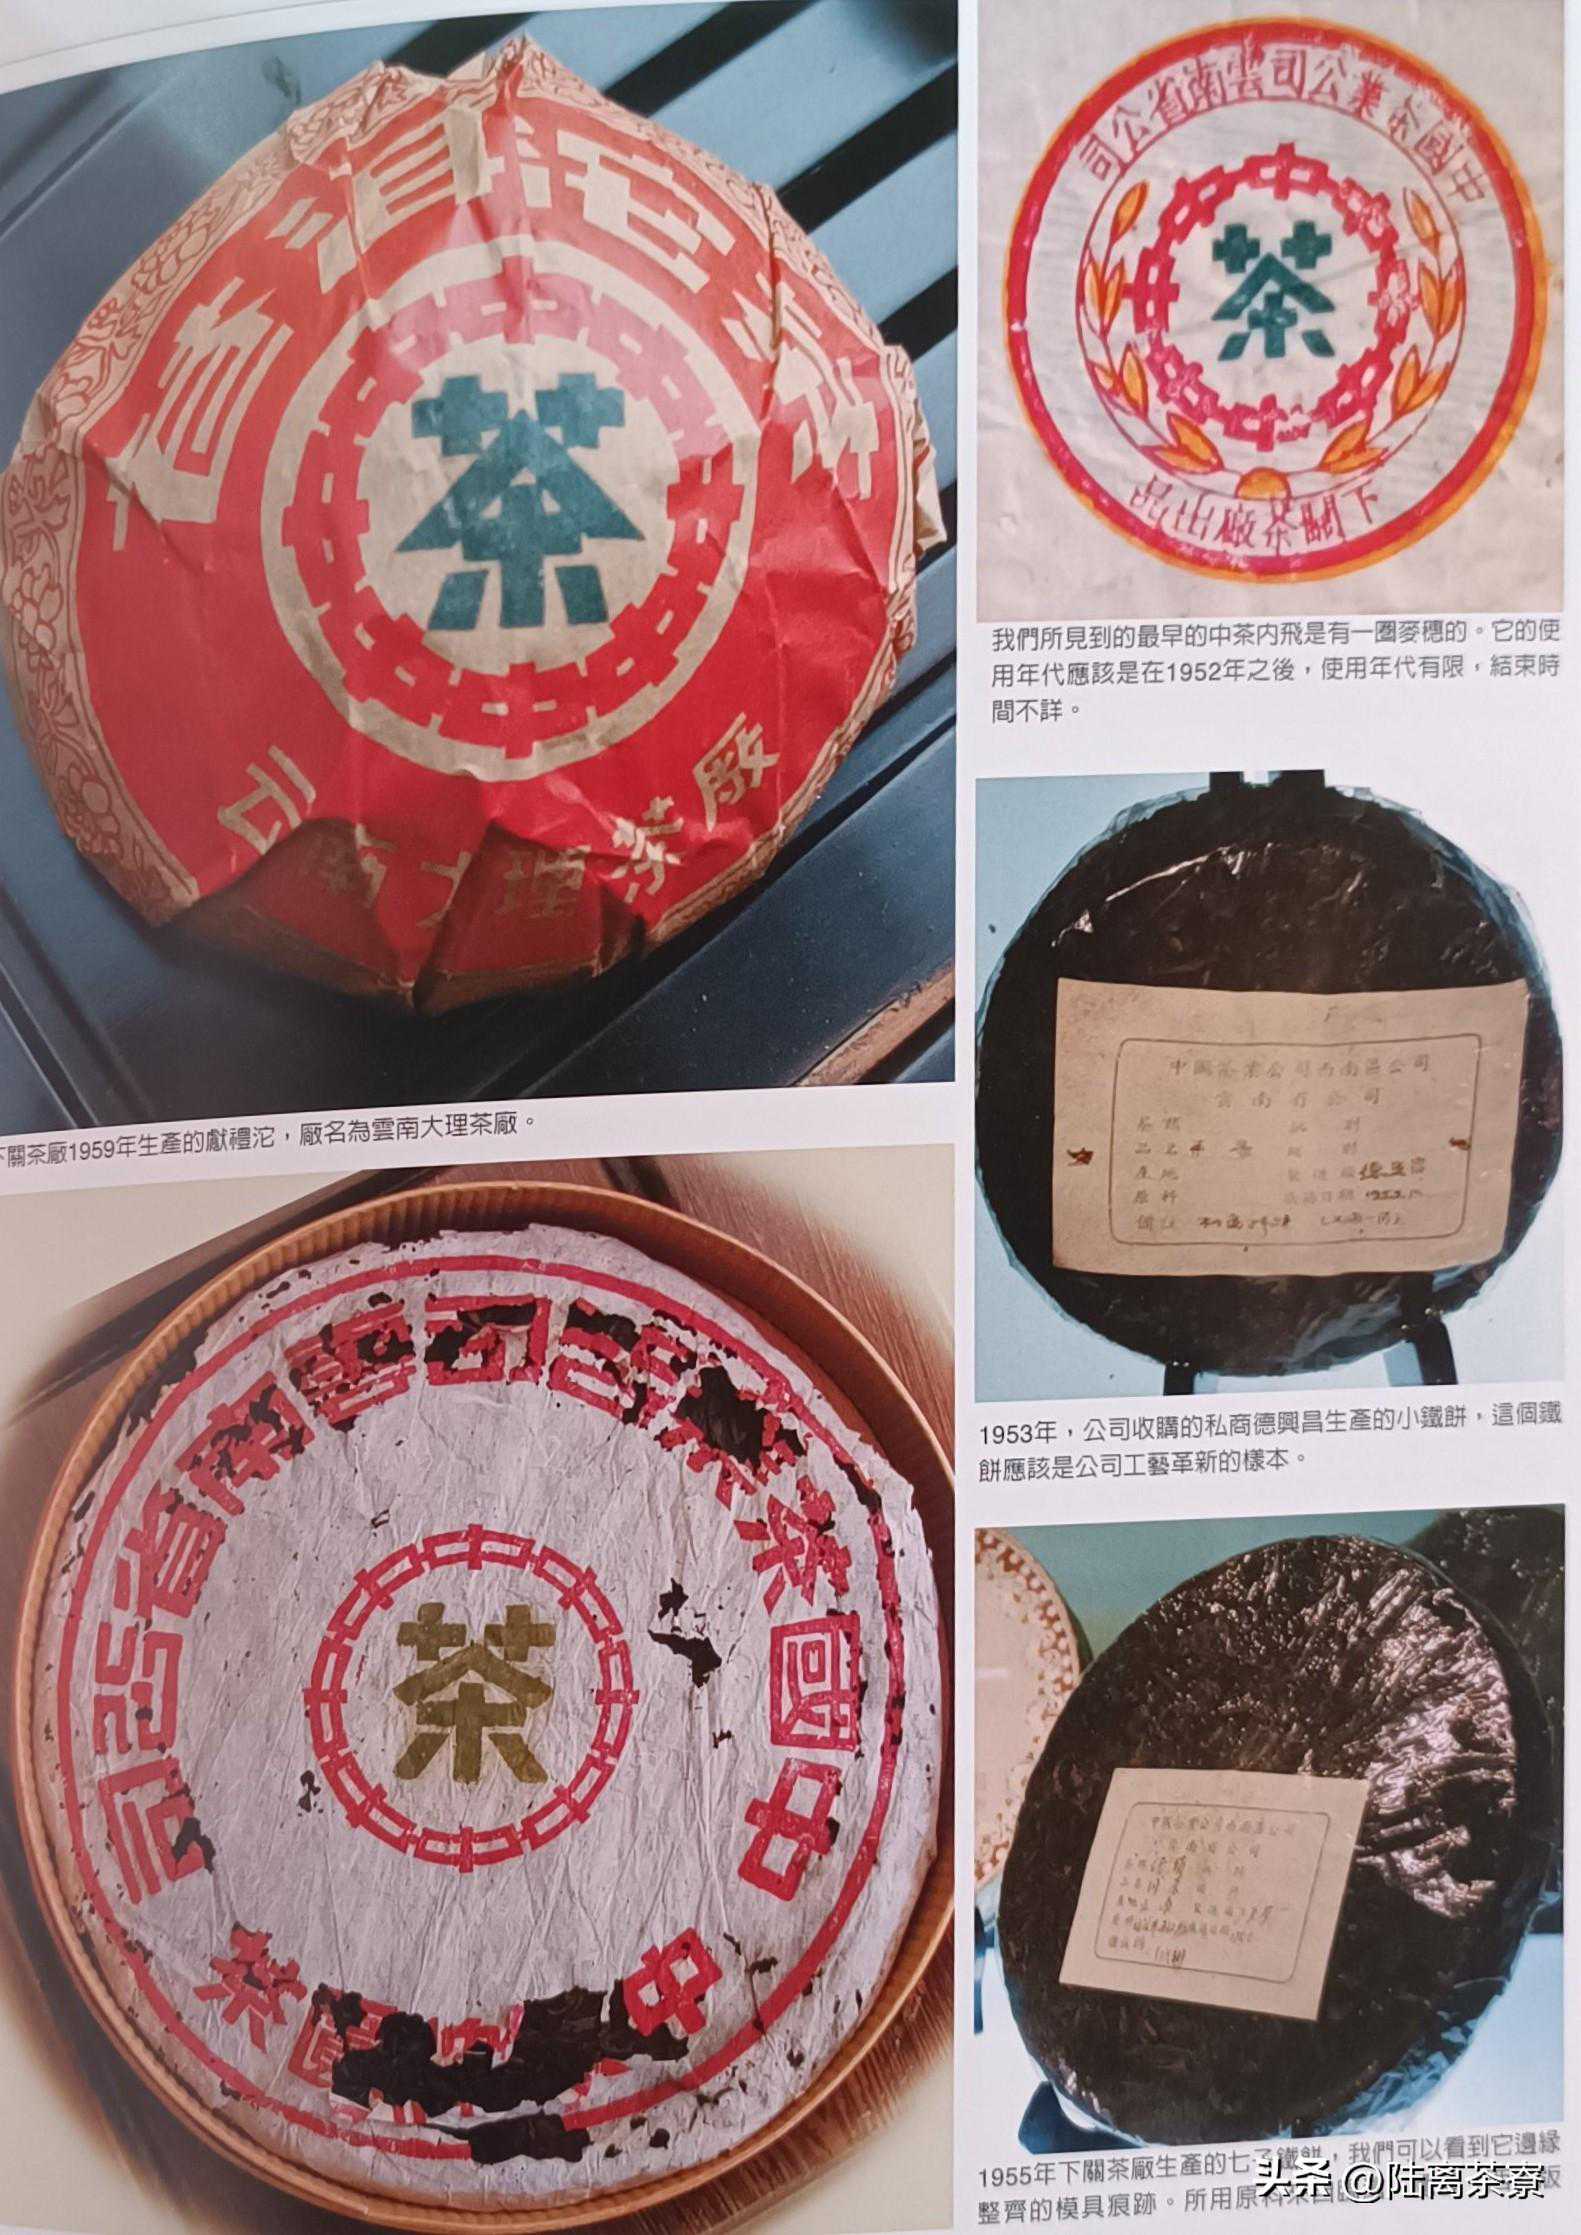 雲南沱茶
茶
雲南大理茶廠
下關茶廠1959年生產的獻禮沱，廠名為雲南大理茶廠。
中國茶業公司雲南省公司
茶
下關茶廠出品
我們所見到的最早的中茶內飛是有一圈麥穗的。它的使
用年代應該是在1952年之後，使用年代有限，結束時
間不詳。
中國茶業公司西南區公司
雲南省公司
茶類
品名
產地
原料
備註
1953年，公司收購的私商德興昌生產的小鐵餅，這個鐵
餅應該是公司工藝革新的樣本。
中國茶業公司雲南省公司
茶
中茶
中國茶業公司西南區公司
雲南省公司
1955年下關茶廠生產的七子鐵餅，我們可以看到它邊緣
整齊的模具痕跡。所用原料來自臨
头条 @陆离茶寮